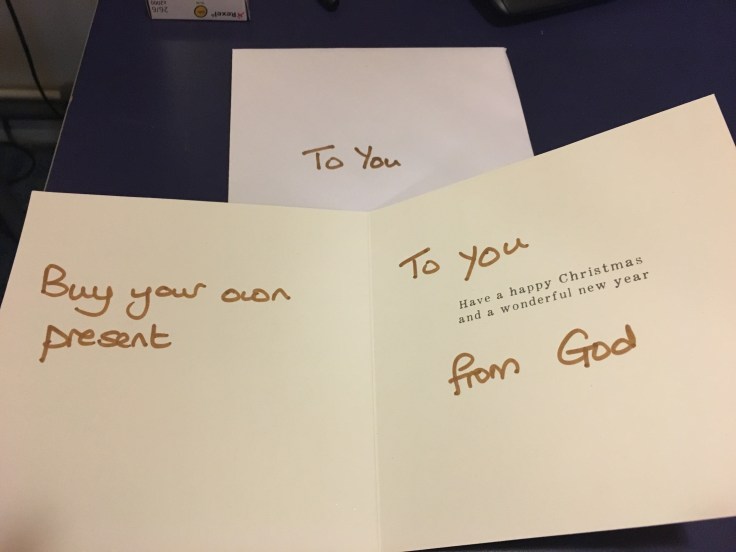 Rexel
26/6
To You
Buy your own
present
To you
Have a happy Christmas
and a wonderful new year
from God